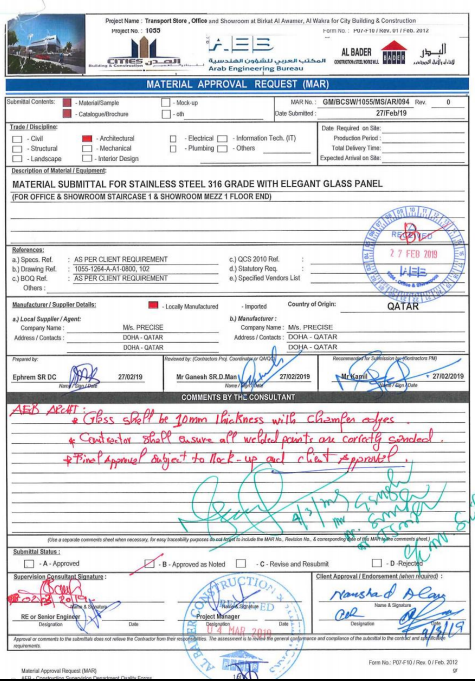 Project Name : Transport Store , Office and Showroom at Birkat Al Awamer, Al Wakra for City Building & Construction
Project No. : 1055
Form No. : P07-F10 / Rev. 01 / Feb. 2012
CITIES المدن
Building & Construction
AEB
المكتب العربي للشؤون الهندسية
Arab Engineering Bureau
AL BADER البدر
MATERIAL APPROVAL REQUEST (MAR)
Submittal Contents: - Material/Sample - Mock-up MAR No. : GM/BCSW/1055/MS/AR/094 Rev. 0
- Catalogue/Brochure - oth Date Submitted : 27/Feb/19
Trade / Discipline: Date Required on Site:
- Civil - Architectural - Electrical - Information Tech. (IT) Production Period :
- Structural - Mechanical - Plumbing - Others Total Delivery Time:
- Landscape - Interior Design Expected Arrival on Site:
Description of Material / Equipment:
MATERIAL SUBMITTAL FOR STAINLESS STEEL 316 GRADE WITH ELEGANT GLASS PANEL
(FOR OFFICE & SHOWROOM STAIRCASE 1 & SHOWROOM MEZZ 1 FLOOR END)
RECEIVED
27 FEB 2019
AEB
References:
a.) Specs. Ref. : AS PER CLIENT REQUIREMENT c.) QCS 2010 Ref. :
b.) Drawing Ref. : 1055-1264-A-A1-0800, 102 d.) Statutory Req. :
c.) BOQ Ref. : AS PER CLIENT REQUIREMENT e.) Specified Vendors List
Others :
Manufacturer / Supplier Details: - Locally Manufactured - Imported Country of Origin: QATAR
a.) Local Supplier / Agent: b.) Manufacturer :
Company Name : M/s. PRECISE Company Name : M/s. PRECISE
Address / Contacts : DOHA - QATAR Address / Contacts : DOHA - QATAR
DOHA - QATAR DOHA - QATAR
Prepared by: Reviewed by: (Contractors Proj. Coordinator or QA/QC) Recommended for Submission by:(Contractors PM)
Ephrem SR DC 27/02/19 Mr Ganesh SR.D.Man 27/02/2019 Mr Kamil 27/02/2019
Name / Sign / Date Name / Sign / Date Name / Sign / Date
COMMENTS BY THE CONSULTANT
AEB ARCHT :
* Glass shall be 10mm thickness with chamfer edges.
* Contractor shall ensure all welded points are correctly sanded.
* Final Approval subject to Mock-up and client Approval.
(Use a separate comments sheet when necessary, for easy traceability purposes do not forget to include the MAR No., Revision No., & corresponding date of this MAR to the comments sheet.)
Submittal Status :
- A - Approved - B - Approved as Noted - C - Revise and Resubmit - D -Rejected
Supervision Consultant Signature : Client Approval / Endorsement (when required) :
Name & Signature Name & Signature Name & Signature
RE or Senior Engineer Project Manager
Designation Date Designation Date
04 MAR 2019
Approval or comments to the submittals does not relieve the Contractor from their responsibilities. The assessment is to review the general performance and compliance of the submittal to the contract and specification requirements.
Form No.: P07-F10 / Rev. 0 / Feb. 2012
Material Approval Request (MAR)
AEB - Construction Supervision Department Quality Forms